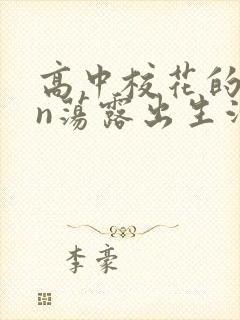 高中校花的
n荡露出生活
李豪